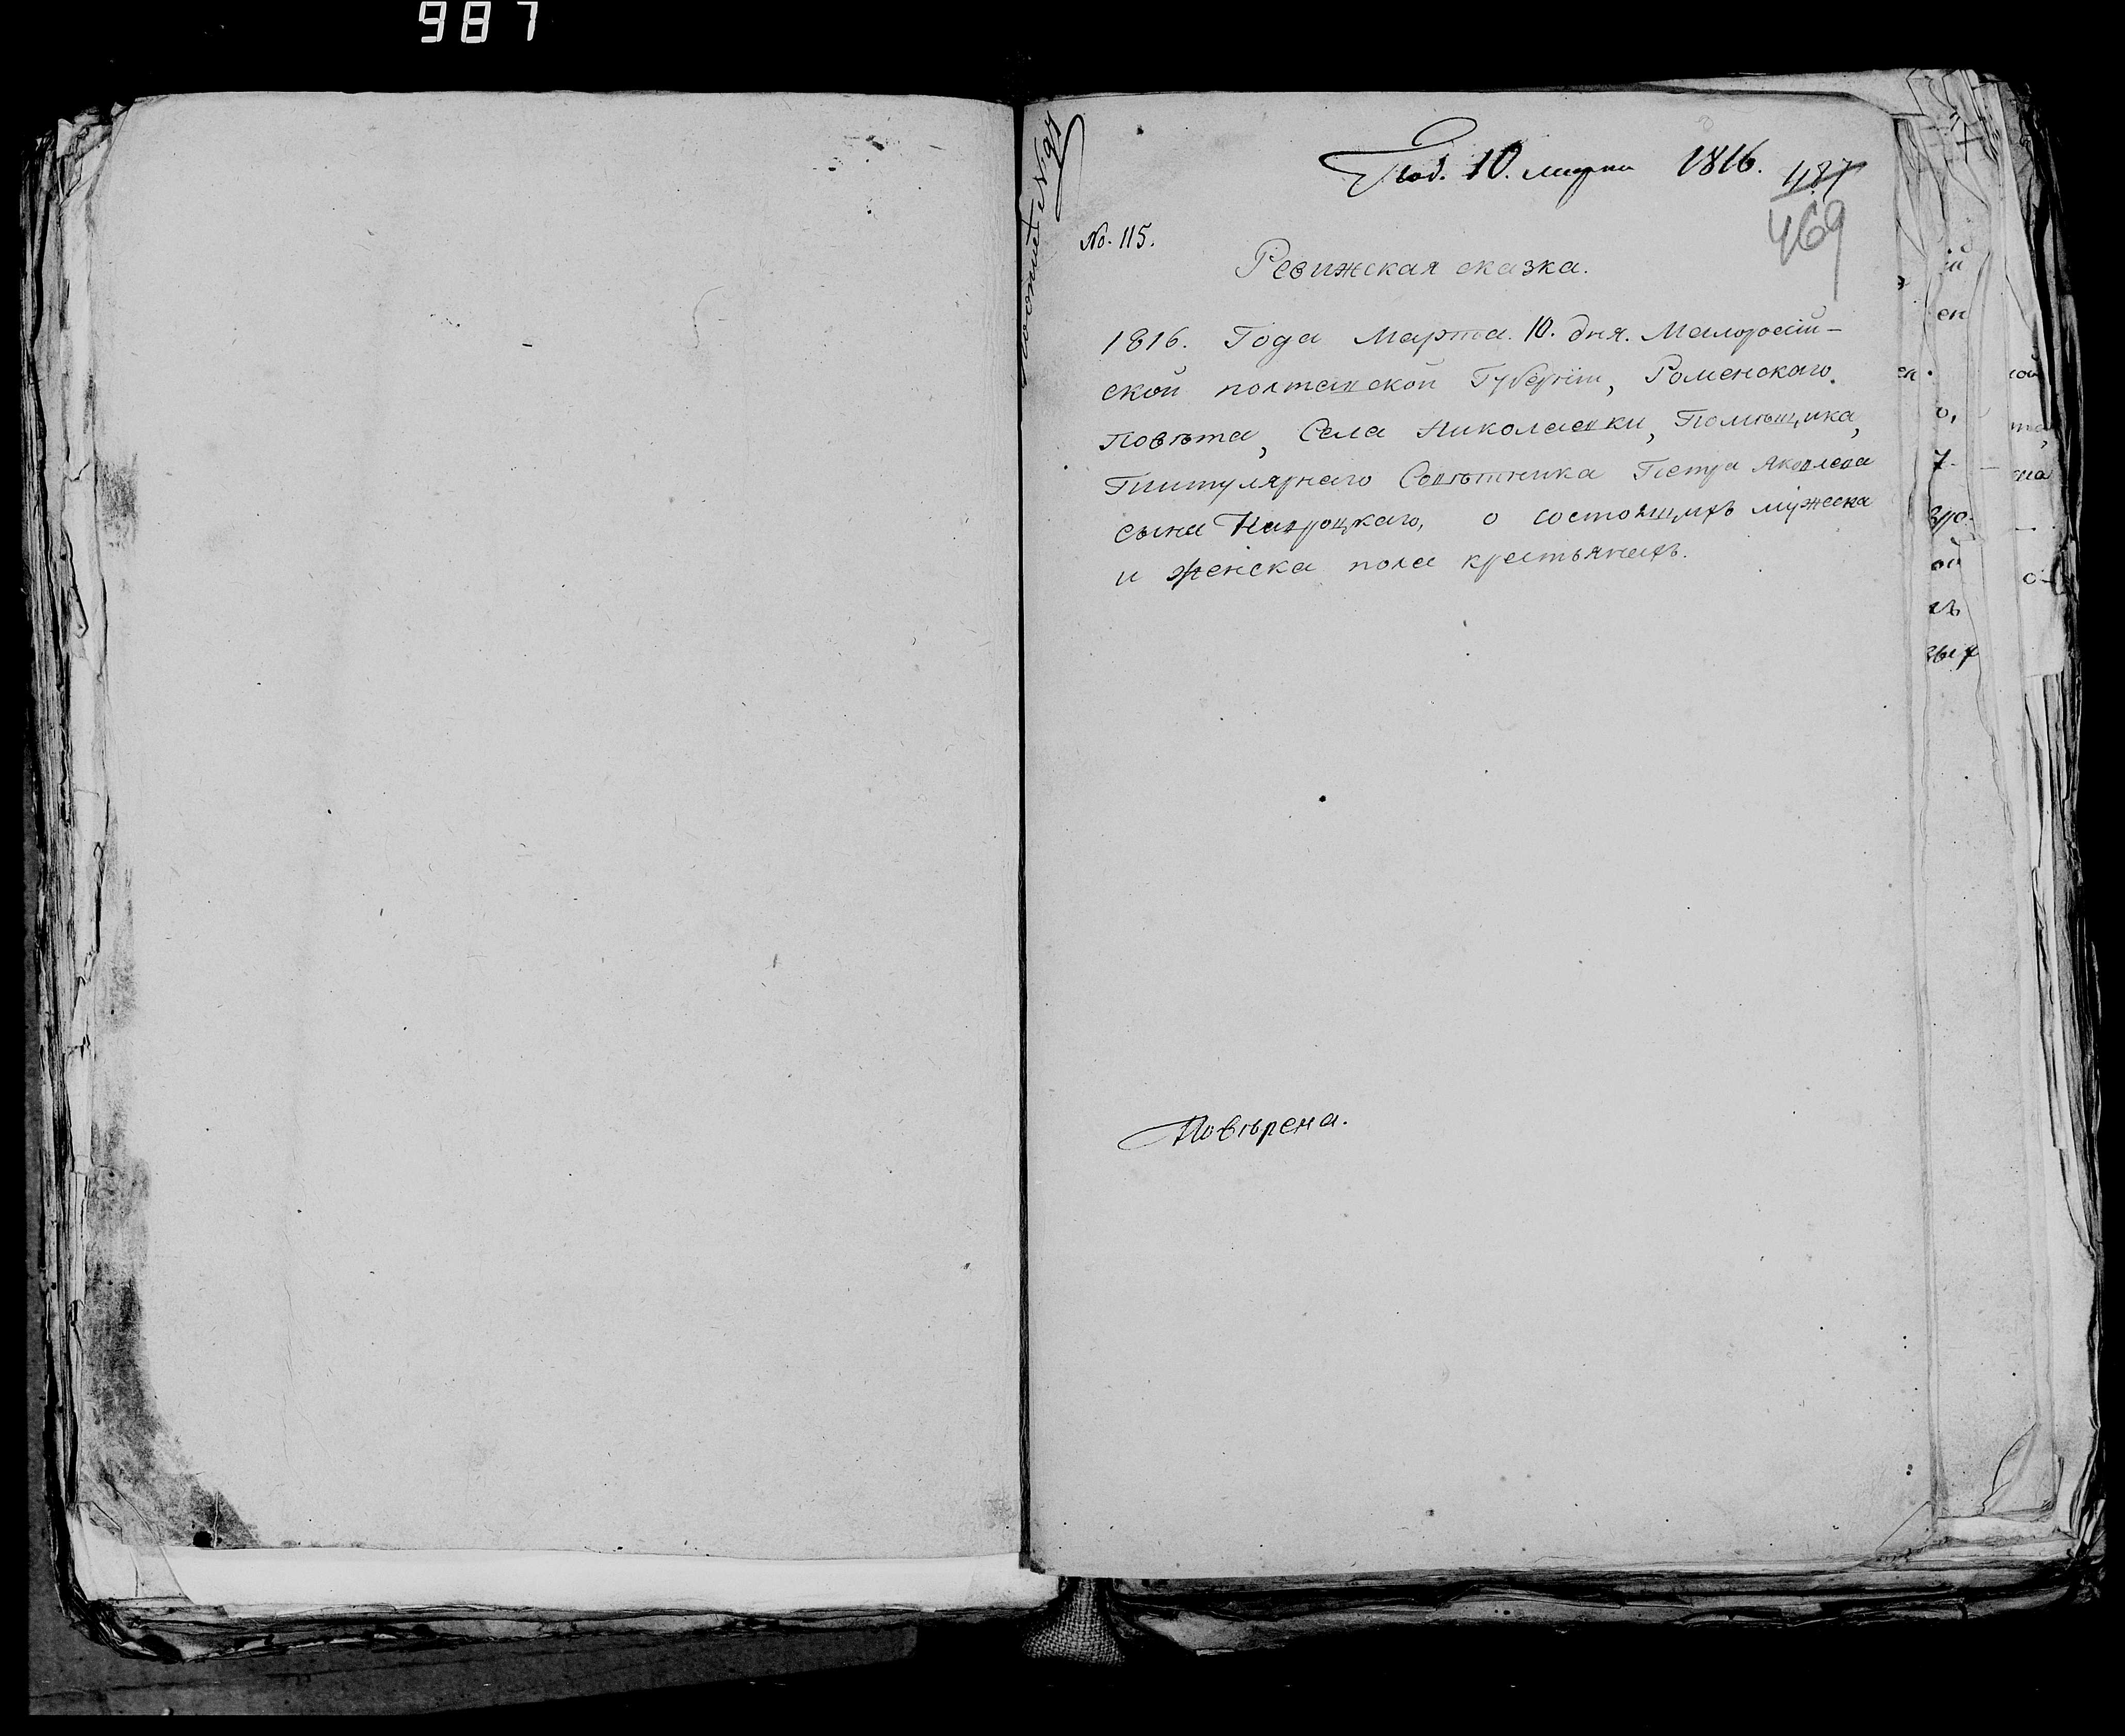 987
Под. 10. марта 1816.
487
469
No. 115.
Ревижская сказка.
1816. Года Марта. 10. дня. Малоросій-
ской полтавской Губерніи, Роменского
Повѣта, Села Николаевки, Помѣщика,
Титулярнаго Совѣтника Петра Яковлева
сына о состоящихъ мужеска
и женска пола крестьянахъ.
Повѣрена.